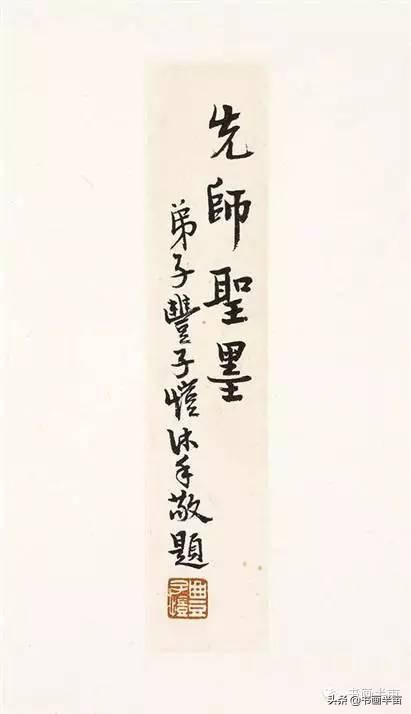 先師聖墨
弟子豐子愷沐手敬題
豐子愷
书画半亩
头条 @书画半亩